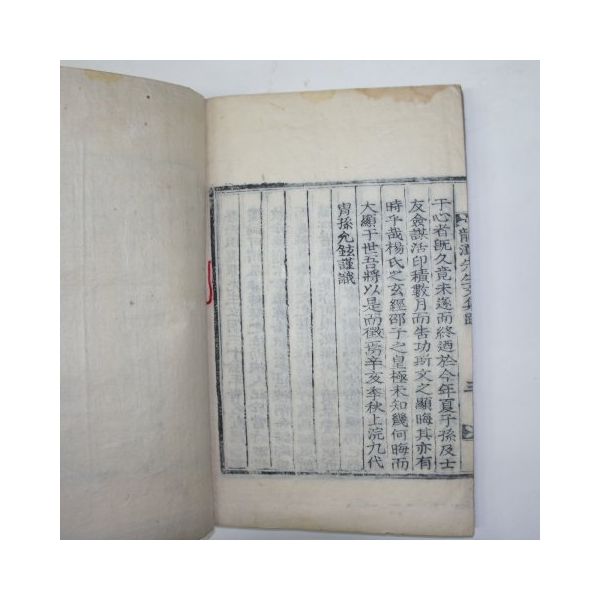 龍潭先生文集跋 三
于心者旣久竟未遂而終迺於今年夏子孫及士
友僉謀活印積數月而告功斯文之顯晦其亦有
時乎哉楊氏之玄經邵子之皇極未知幾何晦而
大顯于世吾將以是而徵焉辛亥季秋上浣九代
冑孫允鉉謹識